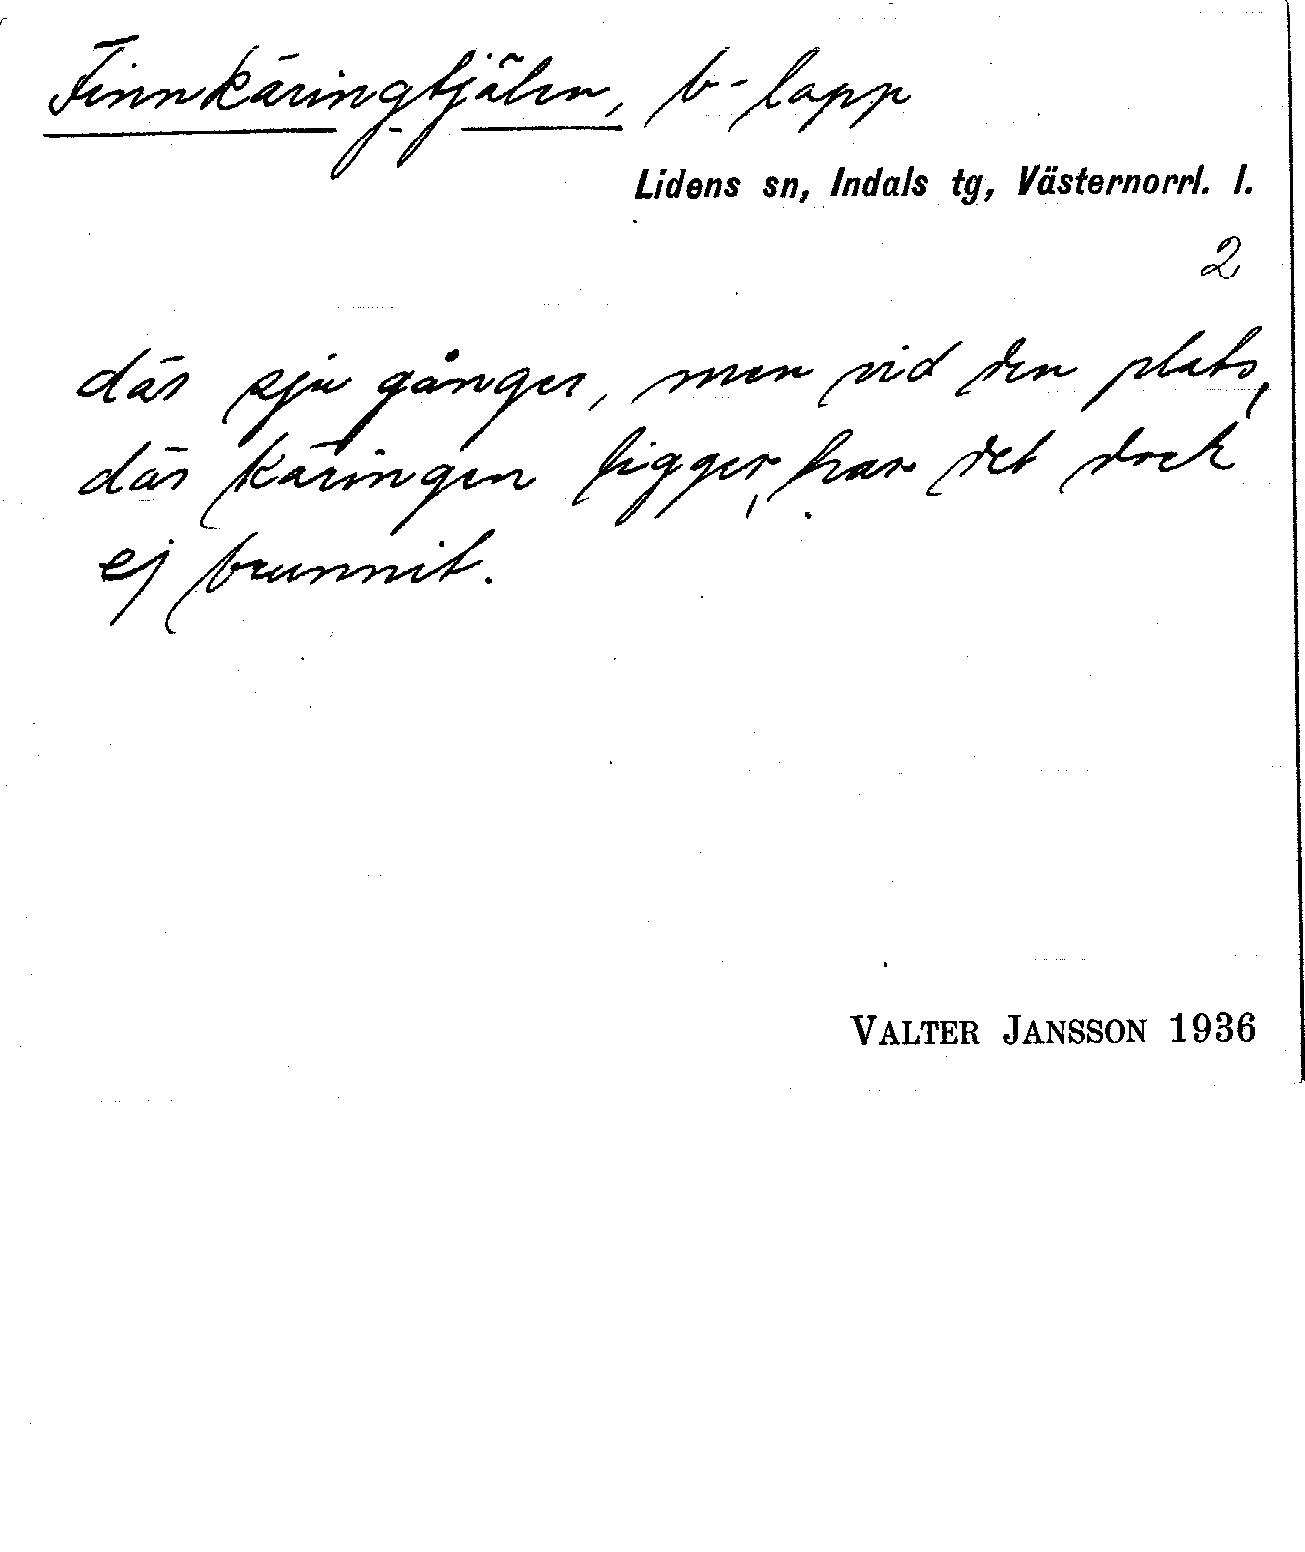 Finnkäringtjälen, b-lapp
Lidens sn, Indals tg, Västernorrl. l.
2
där sju gånger, men vid den plats,
där käringen ligger, har det dock
ej brunnit.
VALTER JANSSON 1936